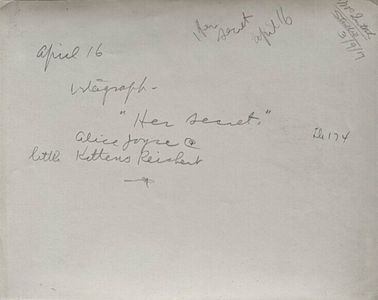 Her secret April 16
3/9/17
April 16
Vitagraph -
"Her secret."
Alice Joyce @
little Kittens Reichert
174